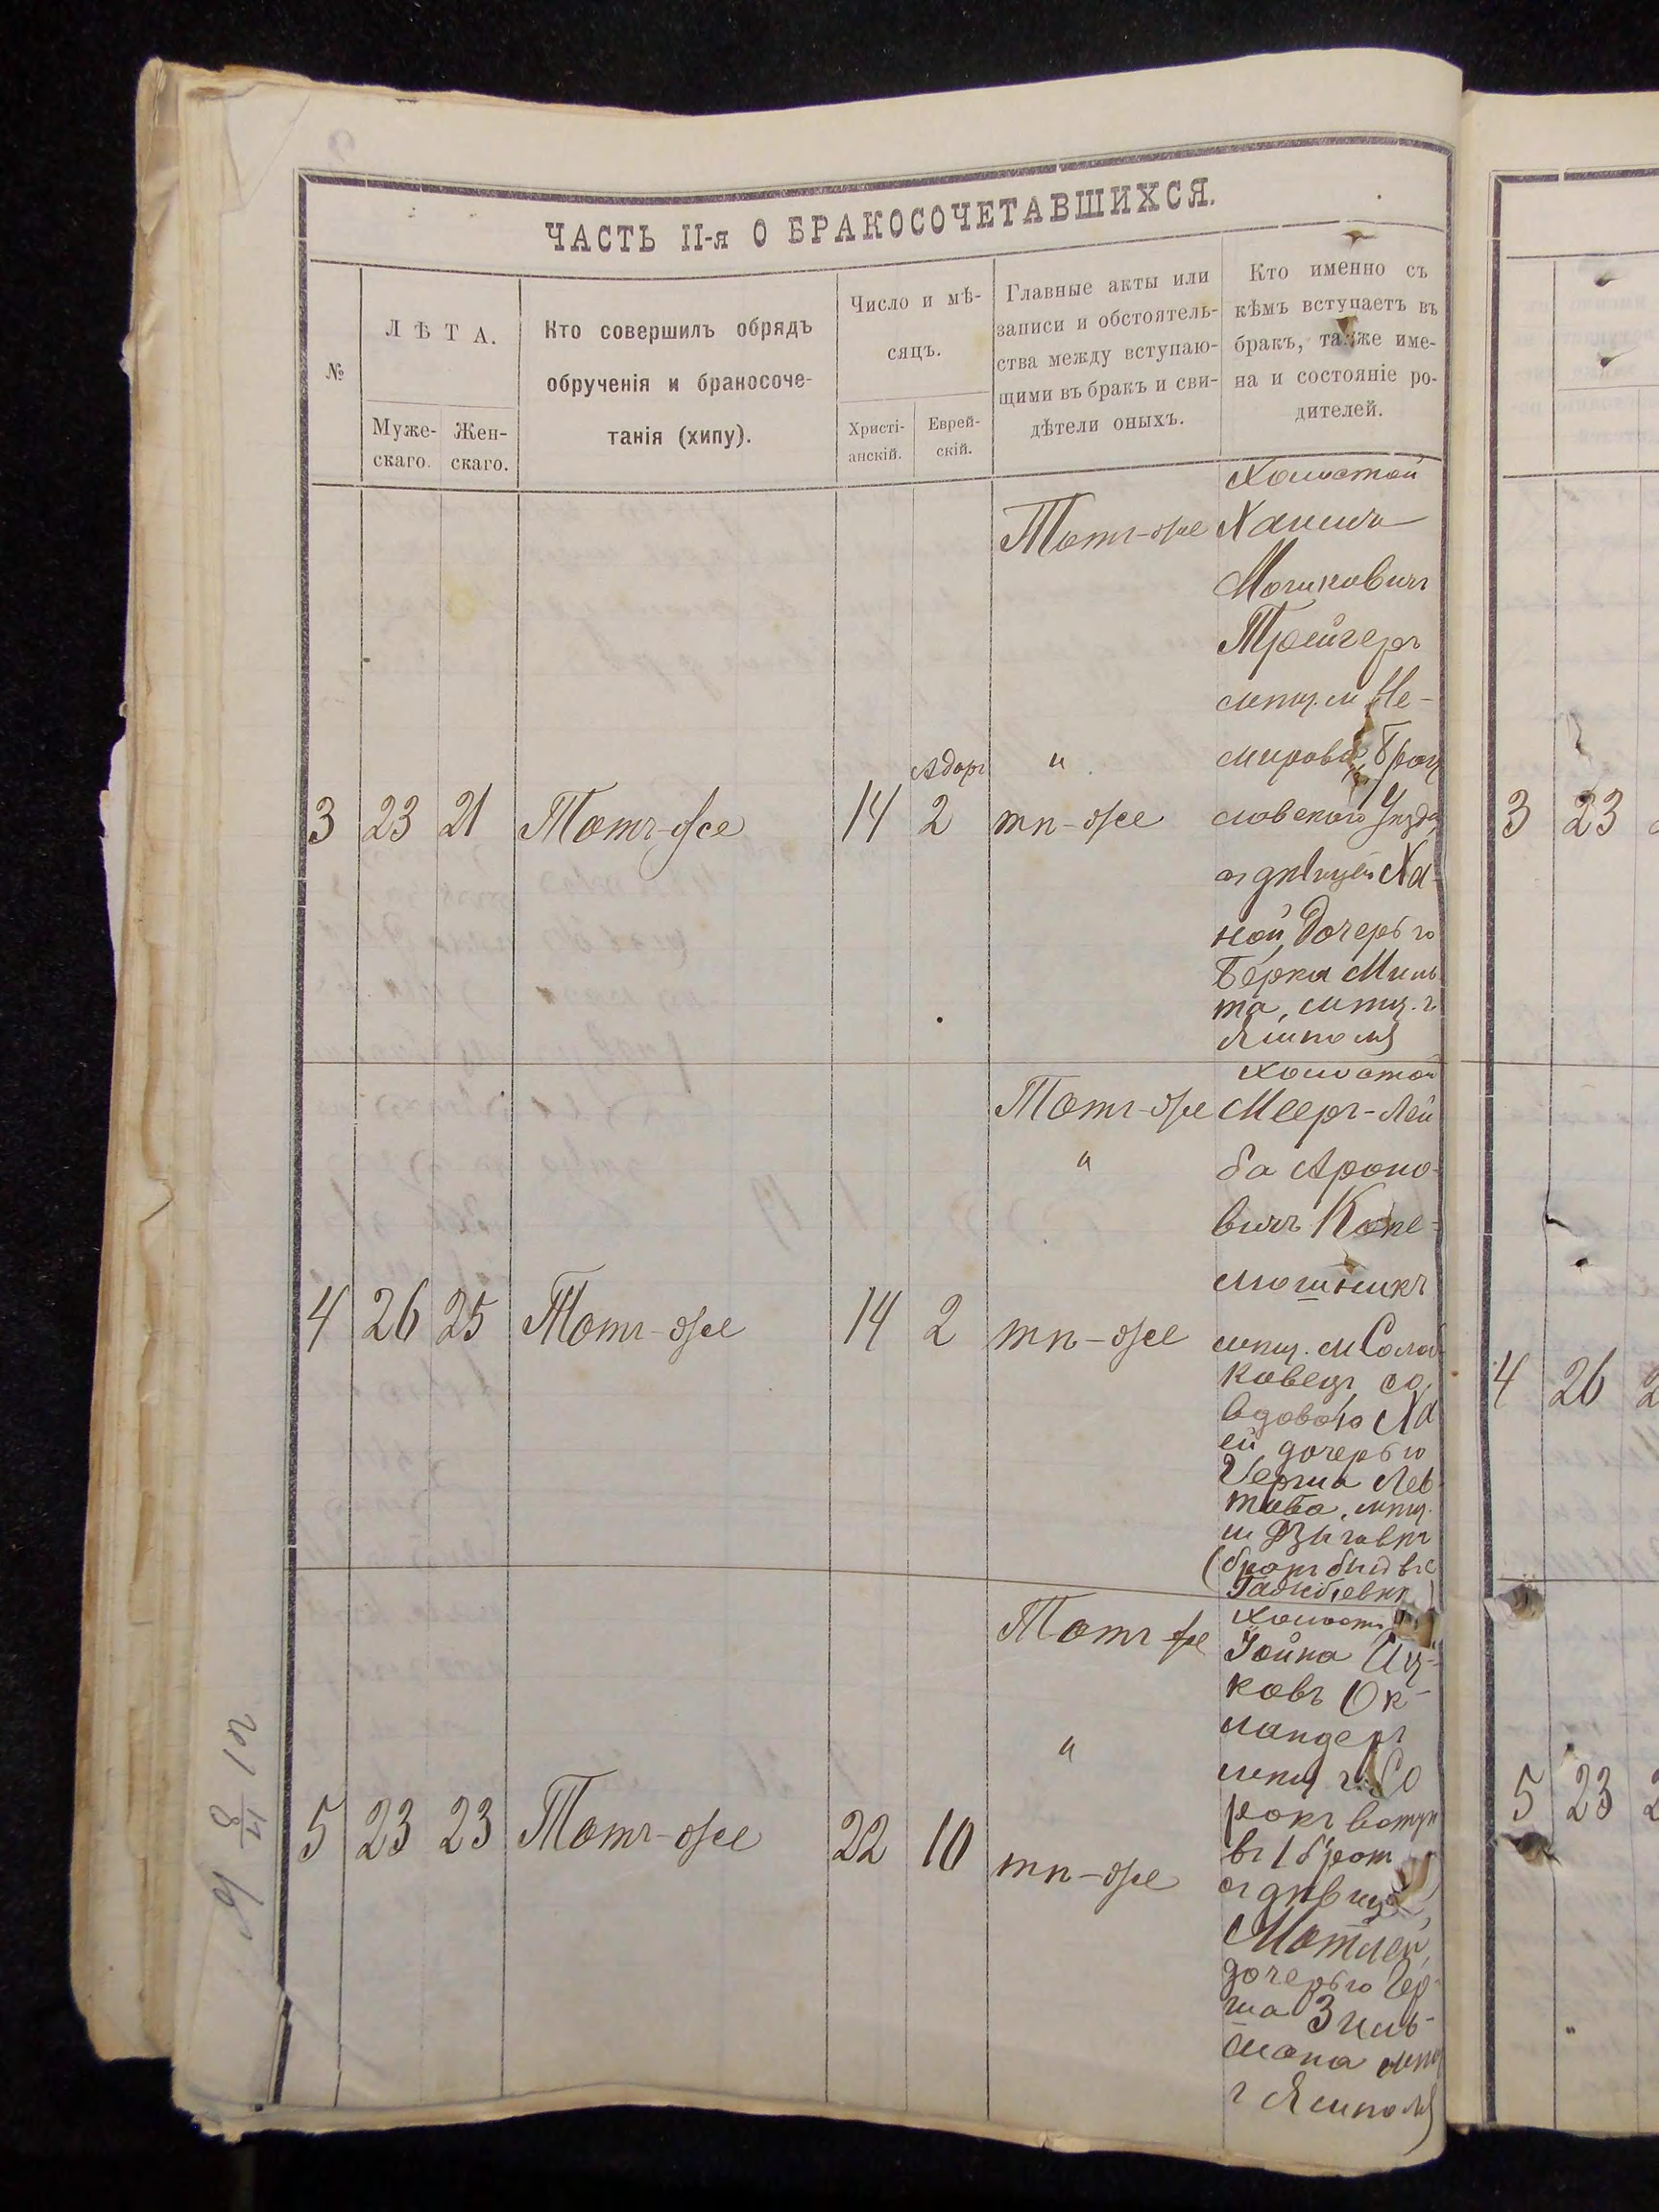 ЧАСТЬ II-я О БРАКОСОЧЕТАВШИХСЯ.
№
ЛѢТА.
Муже-
скаго.
Жен-
скаго.
Кто совершилъ обрядъ
обрученія и бракосоче-
танія (хипу).
Число и мѣ-
сяцъ.
Христі-
анскій.
Еврей-
скій.
Главные акты или
записи и обстоятель-
ства между вступаю-
щими въ бракъ и сви-
дѣтели оныхъ.
Кто именно съ
кѣмъ вступаетъ въ
бракъ, также име-
на и состояніе ро-
дителей.
3 23 21 Тотъ-же 14 Адаръ 2
Тотъ-же
и
тѣ-же
Холостой
Хаимъ
Мошковичъ
Трейгеръ
мѣщ. м Не-
мирова, Брац
лавскаго Уѣзда
съ дѣвицей Ха-
ной, дочерью
Берка Миль
та, мѣщ. г
Ямполя
4 26 25 Тотъ-же 14 2
Тотъ-же
и
тѣ-же
Холостой
Мееръ-Лей
ба Ароно-
вичъ
мѣщ. м
вдовою Ха
ей, дочерью
Герша
мѣщ.
м Дзыговки
5 23 23 Тотъ-же 22 10
Тотъ же
и
тѣ-же
Іойна Иц-
ковъ Ок-
ландеръ
мѣщ г. Со
рокъ вступ
въ 1 бракъ
съ дѣвицей
Мотлей,
дочерью Гер-
ша Зиль-
мана мѣщ
г Ямполя
3 23
4 26 2
5 23 2